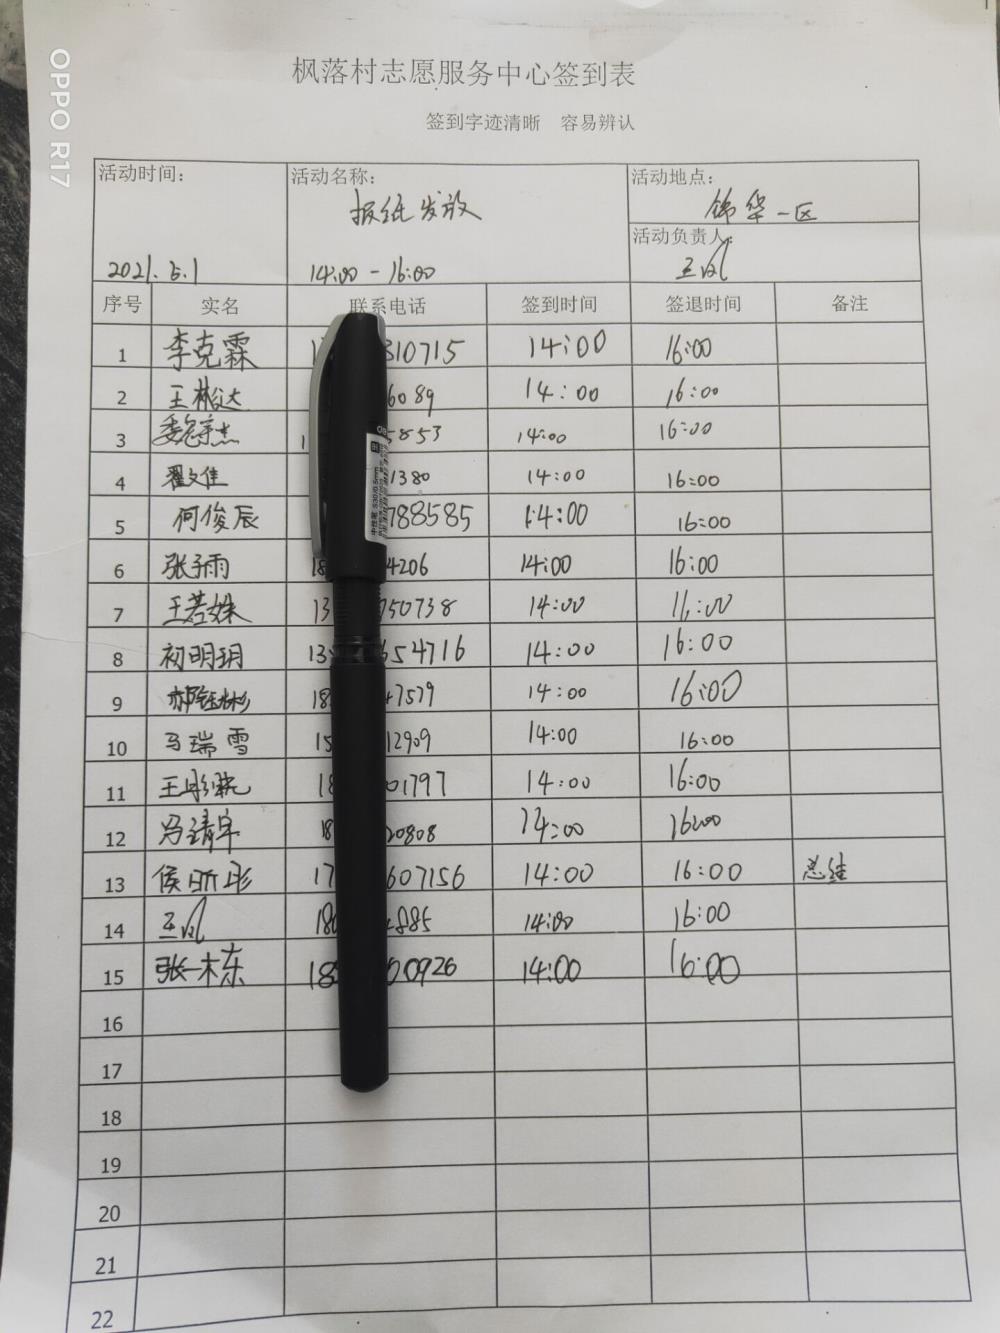 OPPO R17
枫落村志愿服务中心签到表
签到字迹清晰 容易辨认
活动时间： 活动名称： 活动地点：
报纸发放 锦华一区
活动负责人：
2021.5.1 14:00-16:00 王凤
序号 实名 联系电话 签到时间 签退时间 备注
1 李克霖 1 310715 14:00 16:00
2 王彬达 6089 14:00 16:00
3 1 5853 14:00 16:00
4 翟文佳 1380 14:00 16:00
5 何俊辰 788585 14:00 16:00
6 张子雨 18 4206 14:00 16:00
7 王若姝 13 750738 14:00 16:00
8 初明玥 13 654716 14:00 16:00
9 郝钰彬 18 47579 14:00 16:00
10 马瑞雪 15 12909 14:00 16:00
11 18 01797 14:00 16:00
12 冯靖宇 18 20808 14:00 16:00
13 侯昕彤 17 607156 14:00 16:00 总结
14 王凤 180 4885 14:00 16:00
15 张一栋 18 00926 14:00 16:00
16
17
18
19
20
21
22